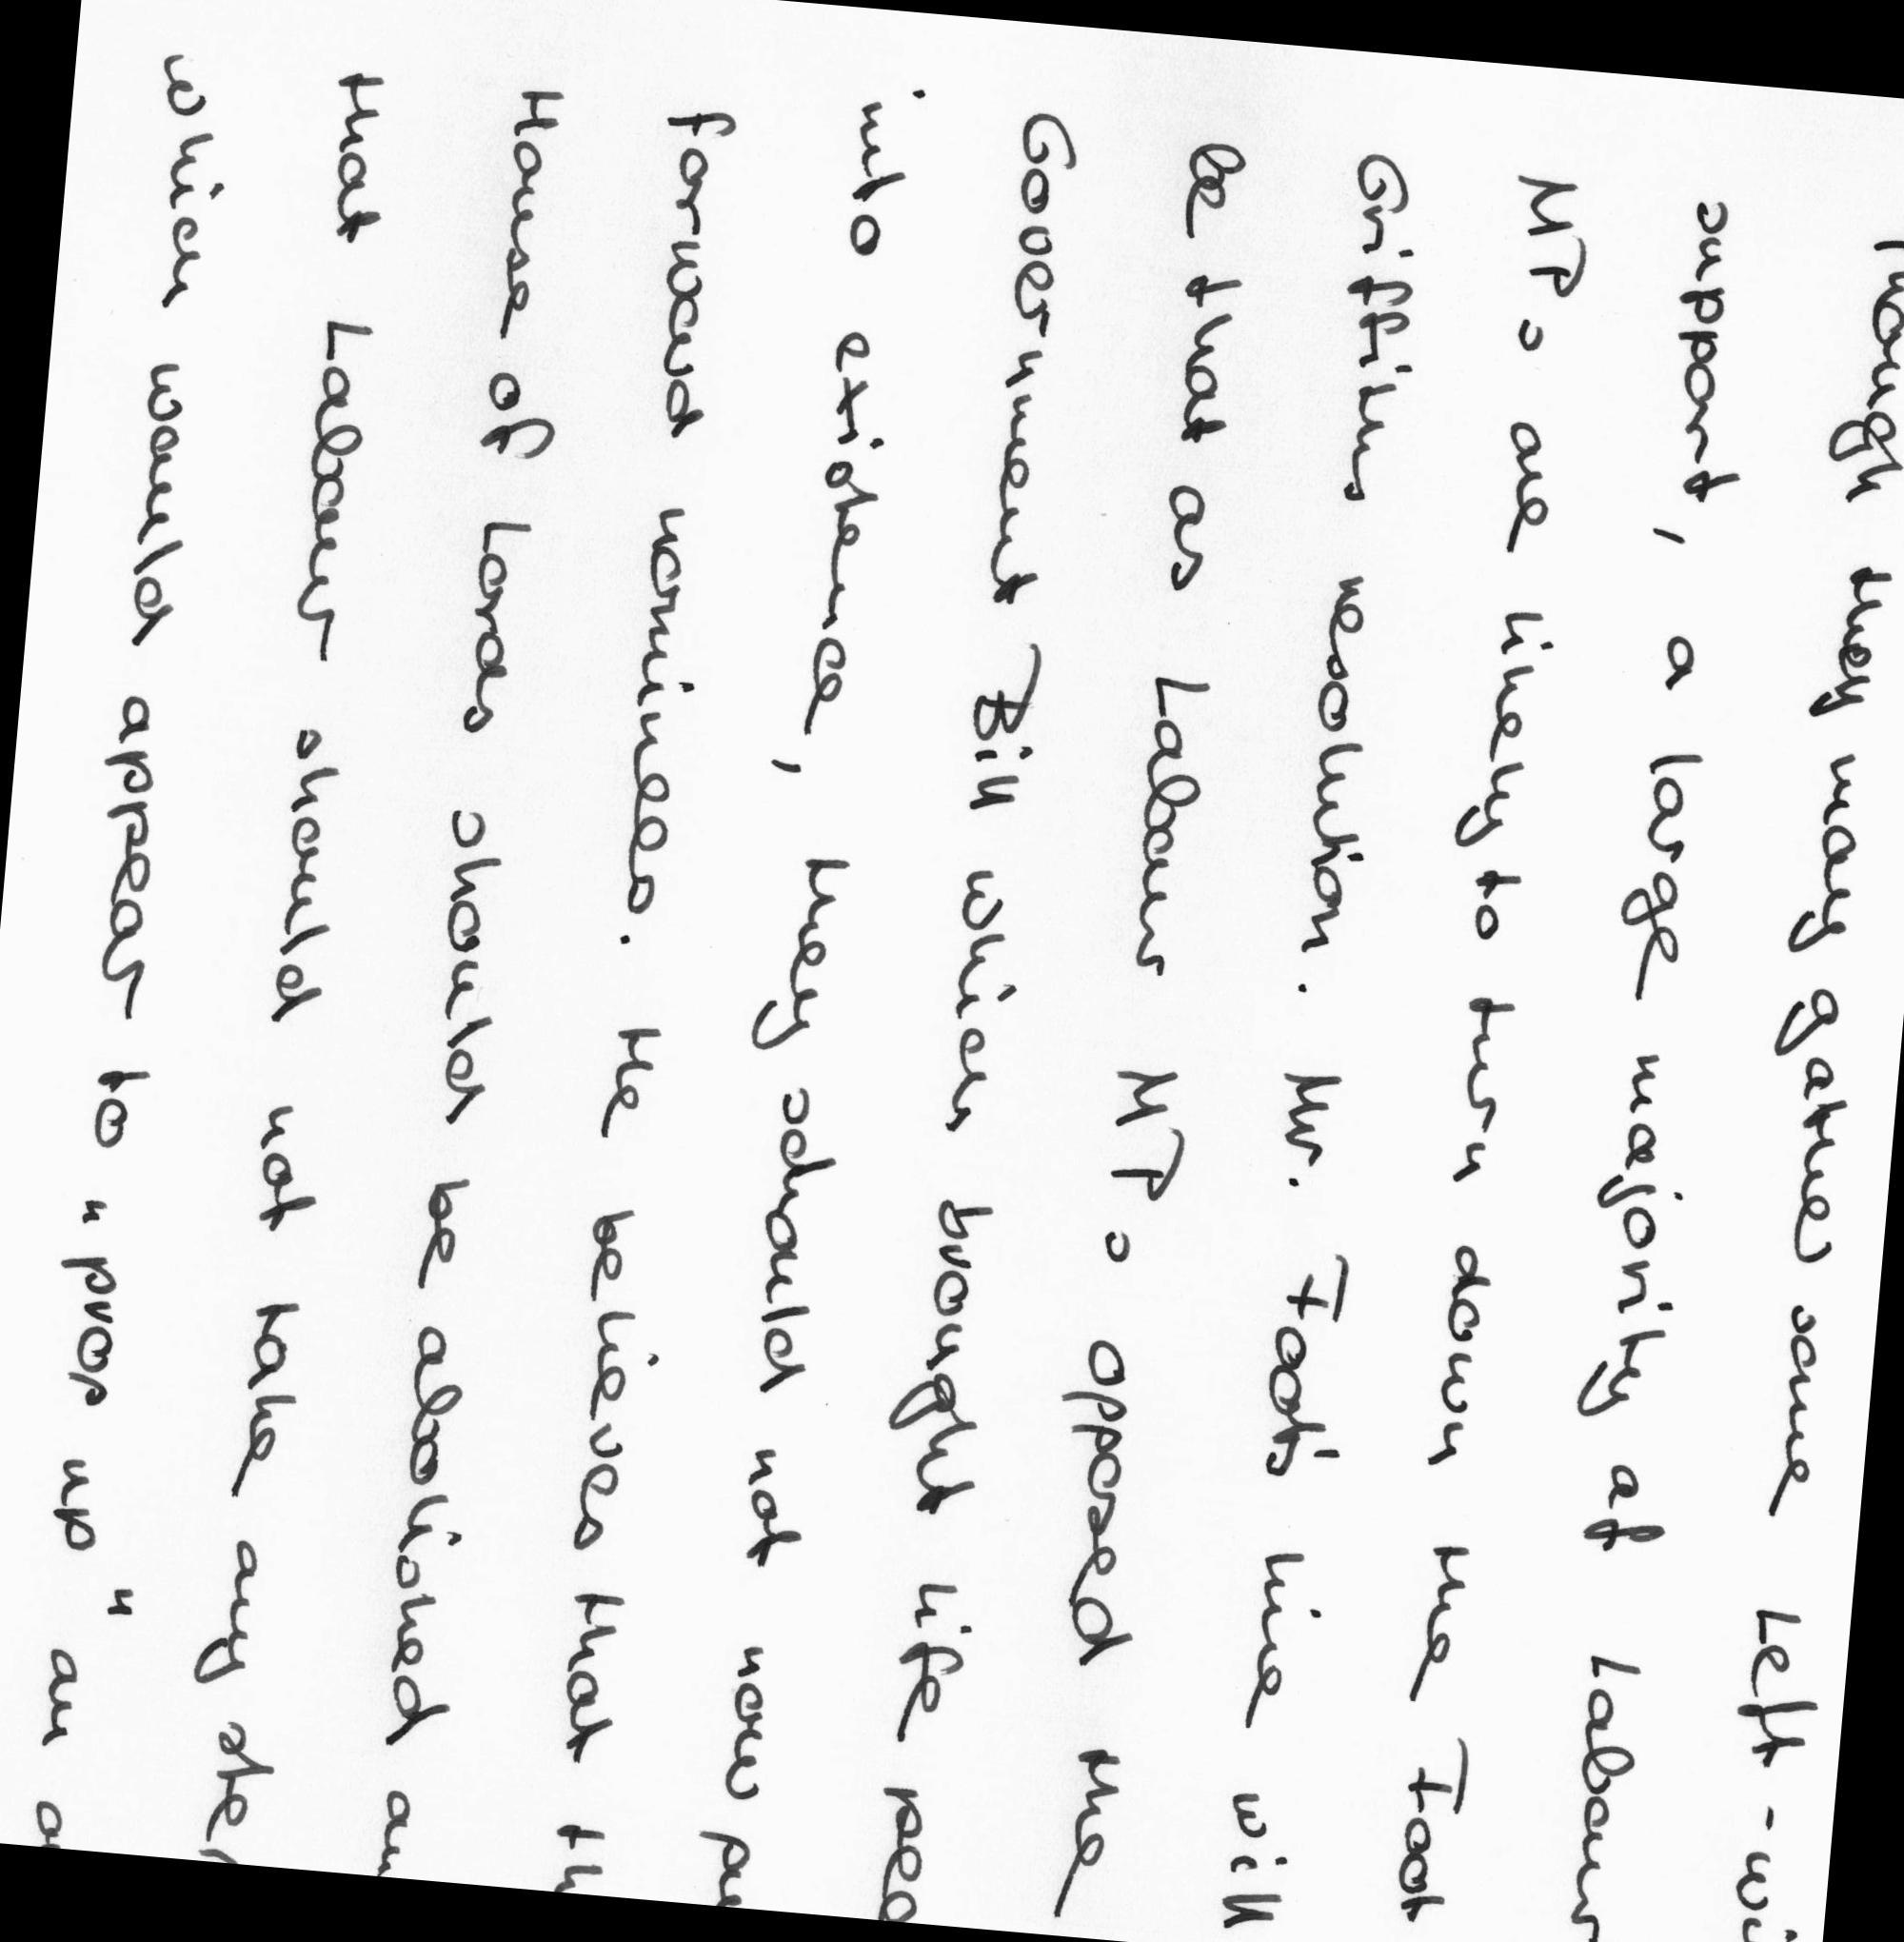 Though they may gather some Left-wi
support, a large majority of Labour
MPs are likely to turn down the Foot
Griffiths resolution. Mr. Foot's line will
be that as Labour MPs opposed the
Government Bill which brought life pee
into existence, they should not now pu
forward nominees. He believes that th
House of Lords should be abolished an
that Labour should not take any ste
which would appear to "prop up" an o